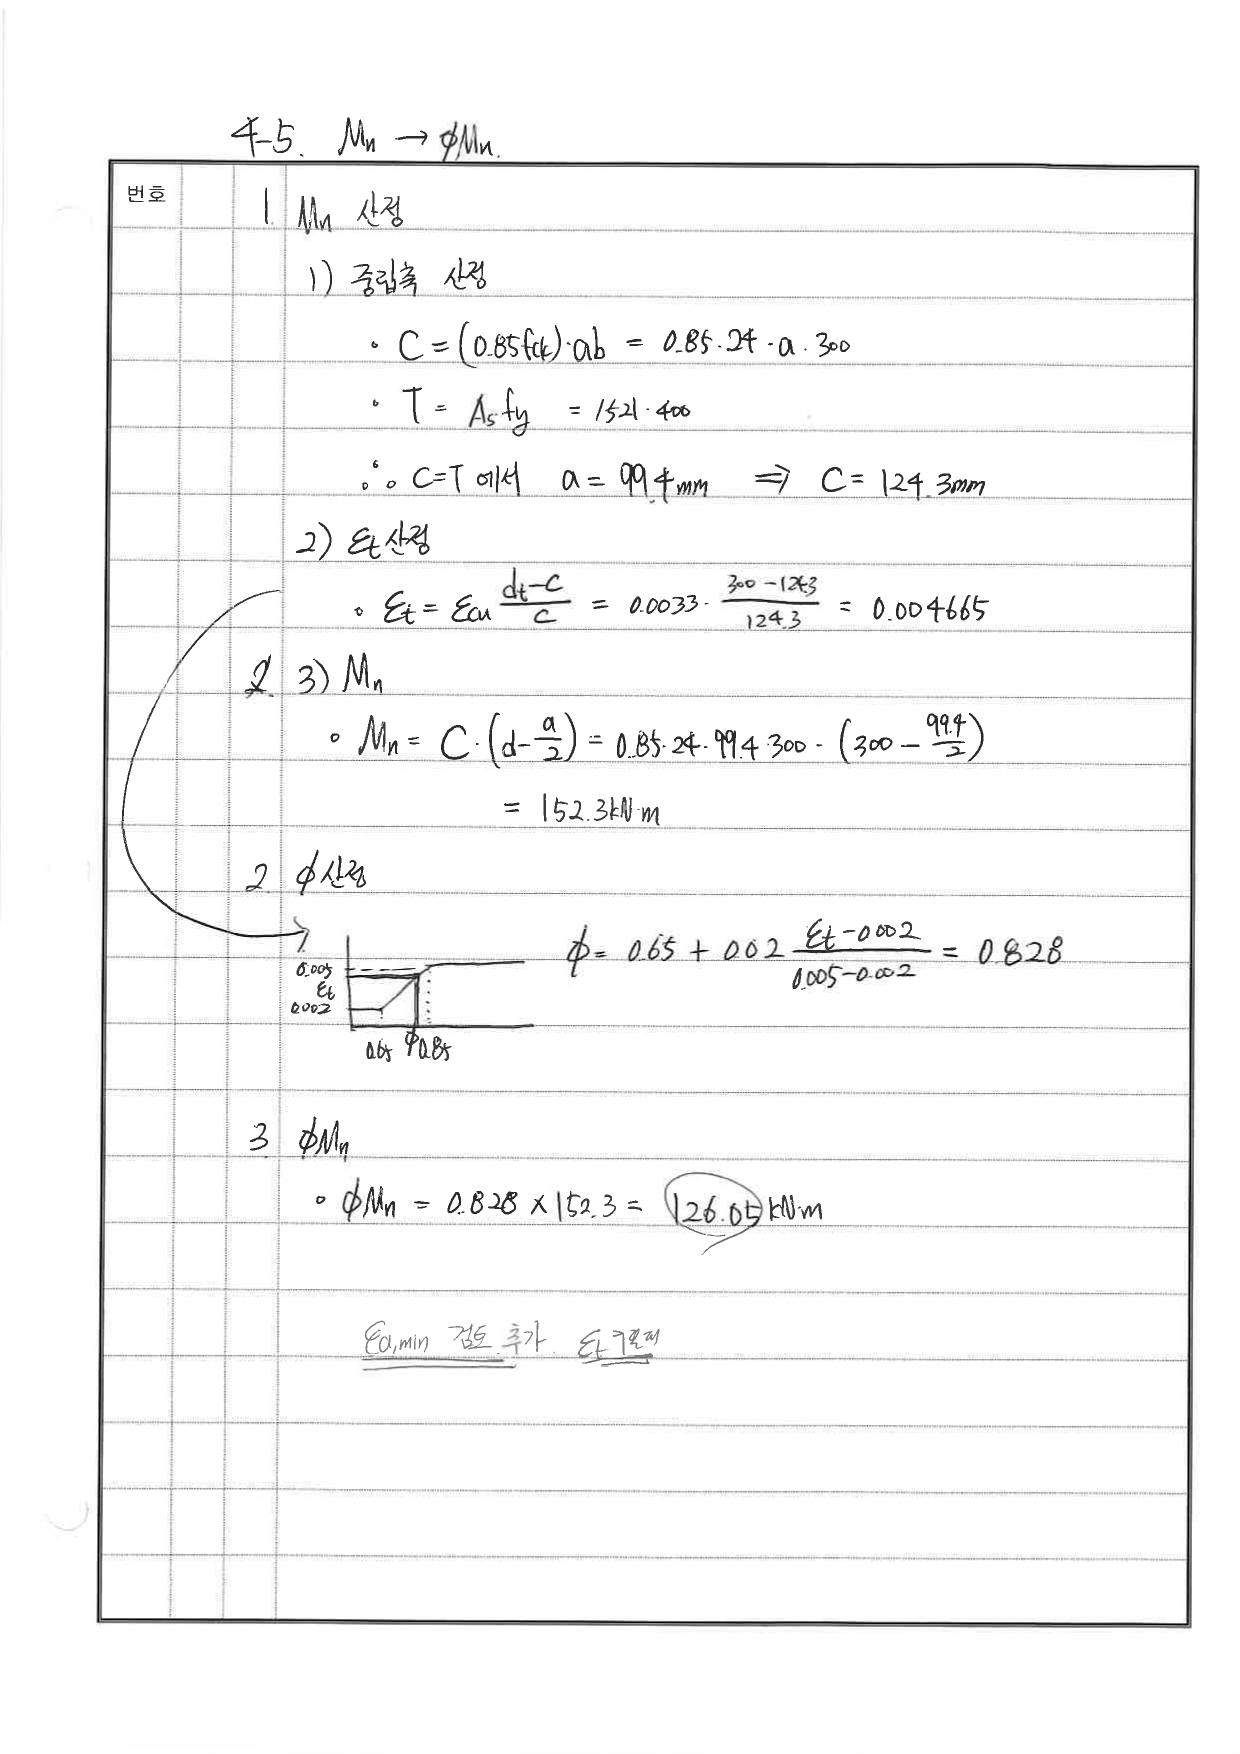 4-5. Mn → φMn.
번호
1. Mn 산정
1) 중립축 산정
• C = (0.85fck)·ab = 0.85·24·a·300
• T = Asfy = 1521·400
∴ C=T 에서 a = 99.4mm ⇒ C = 124.3mm
2) εt 산정
• εt = εcu (dt-c)/c = 0.0033· (300-124.3)/124.3 = 0.004665
3) Mn
• Mn = C·(d-a/2) = 0.85·24·99.4·300·(300-99.4/2)
= 152.3kN·m
2 φ산정
φ= 0.65 + 0.02 (εt-0.002)/(0.005-0.002) = 0.828
0.005
εt
0.002
0.65 φ 0.85
3 φMn
• φMn = 0.828 × 152.3 = 126.05 kN·m
εa,min 검토 추가. εt